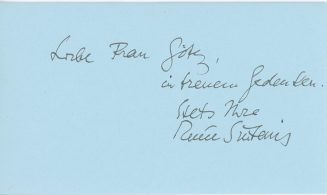 Liebe Frau Götz,
in treuem Gedenken.
Stets Ihre
Renée Sintenis